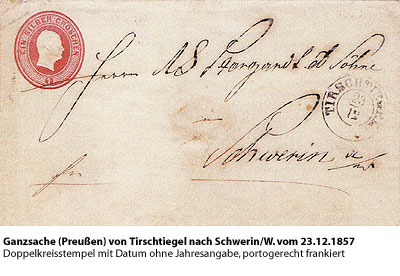 EIN SILBER GROSCHEN
1
Herrn
Söhne
TIRSCHTIEGEL
23
12
in
Schwerin a/
Ganzsache (Preußen) von Tirschtiegel nach Schwerin/W. vom 23.12.1857
Doppelkreisstempel mit Datum ohne Jahresangabe, portogerecht frankiert